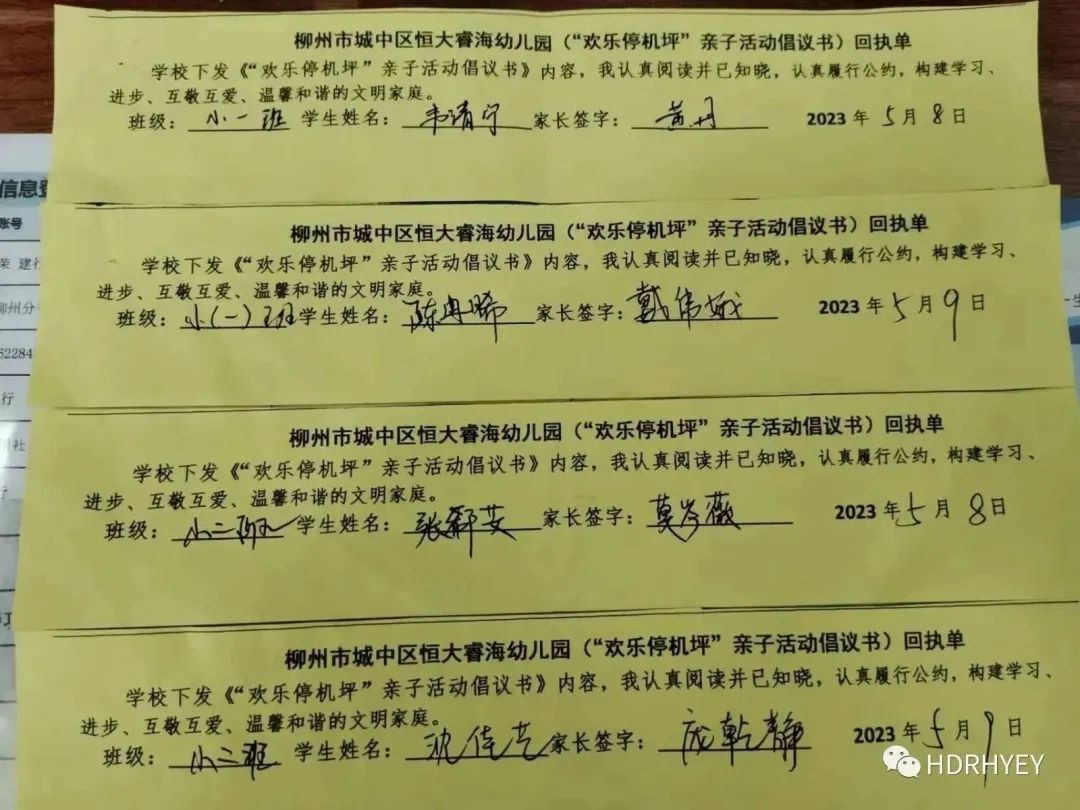 柳州市城中区恒大睿海幼儿园（“欢乐停机坪”亲子活动倡议书）回执单
学校下发《“欢乐停机坪”亲子活动倡议书》内容，我认真阅读并已知晓，认真履行公约，构建学习、
进步、互敬互爱、温馨和谐的文明家庭。
班级：小一班 学生姓名：韦靖宁 家长签字：黄丹 2023 年 5 月 8 日
柳州市城中区恒大睿海幼儿园（“欢乐停机坪”亲子活动倡议书）回执单
学校下发《“欢乐停机坪”亲子活动倡议书》内容，我认真阅读并已知晓，认真履行公约，构建学习、
进步、互敬互爱、温馨和谐的文明家庭。
班级：小(一)班 学生姓名：陈冉晞 家长签字：戴伟 2023 年 5 月 9 日
柳州市城中区恒大睿海幼儿园（“欢乐停机坪”亲子活动倡议书）回执单
学校下发《“欢乐停机坪”亲子活动倡议书》内容，我认真阅读并已知晓，认真履行公约，构建学习、
进步、互敬互爱、温馨和谐的文明家庭。
班级：小二班 学生姓名：张 家长签字：莫 薇 2023 年 5 月 8 日
柳州市城中区恒大睿海幼儿园（“欢乐停机坪”亲子活动倡议书）回执单
学校下发《“欢乐停机坪”亲子活动倡议书》内容，我认真阅读并已知晓，认真履行公约，构建学习、
进步、互敬互爱、温馨和谐的文明家庭。
班级：小二班 学生姓名：沈佳艺 家长签字：庞乾静 2023 年 5 月 9 日
信息
账号
荣 建行
柳州分
62284
行
社
HDRHYEY